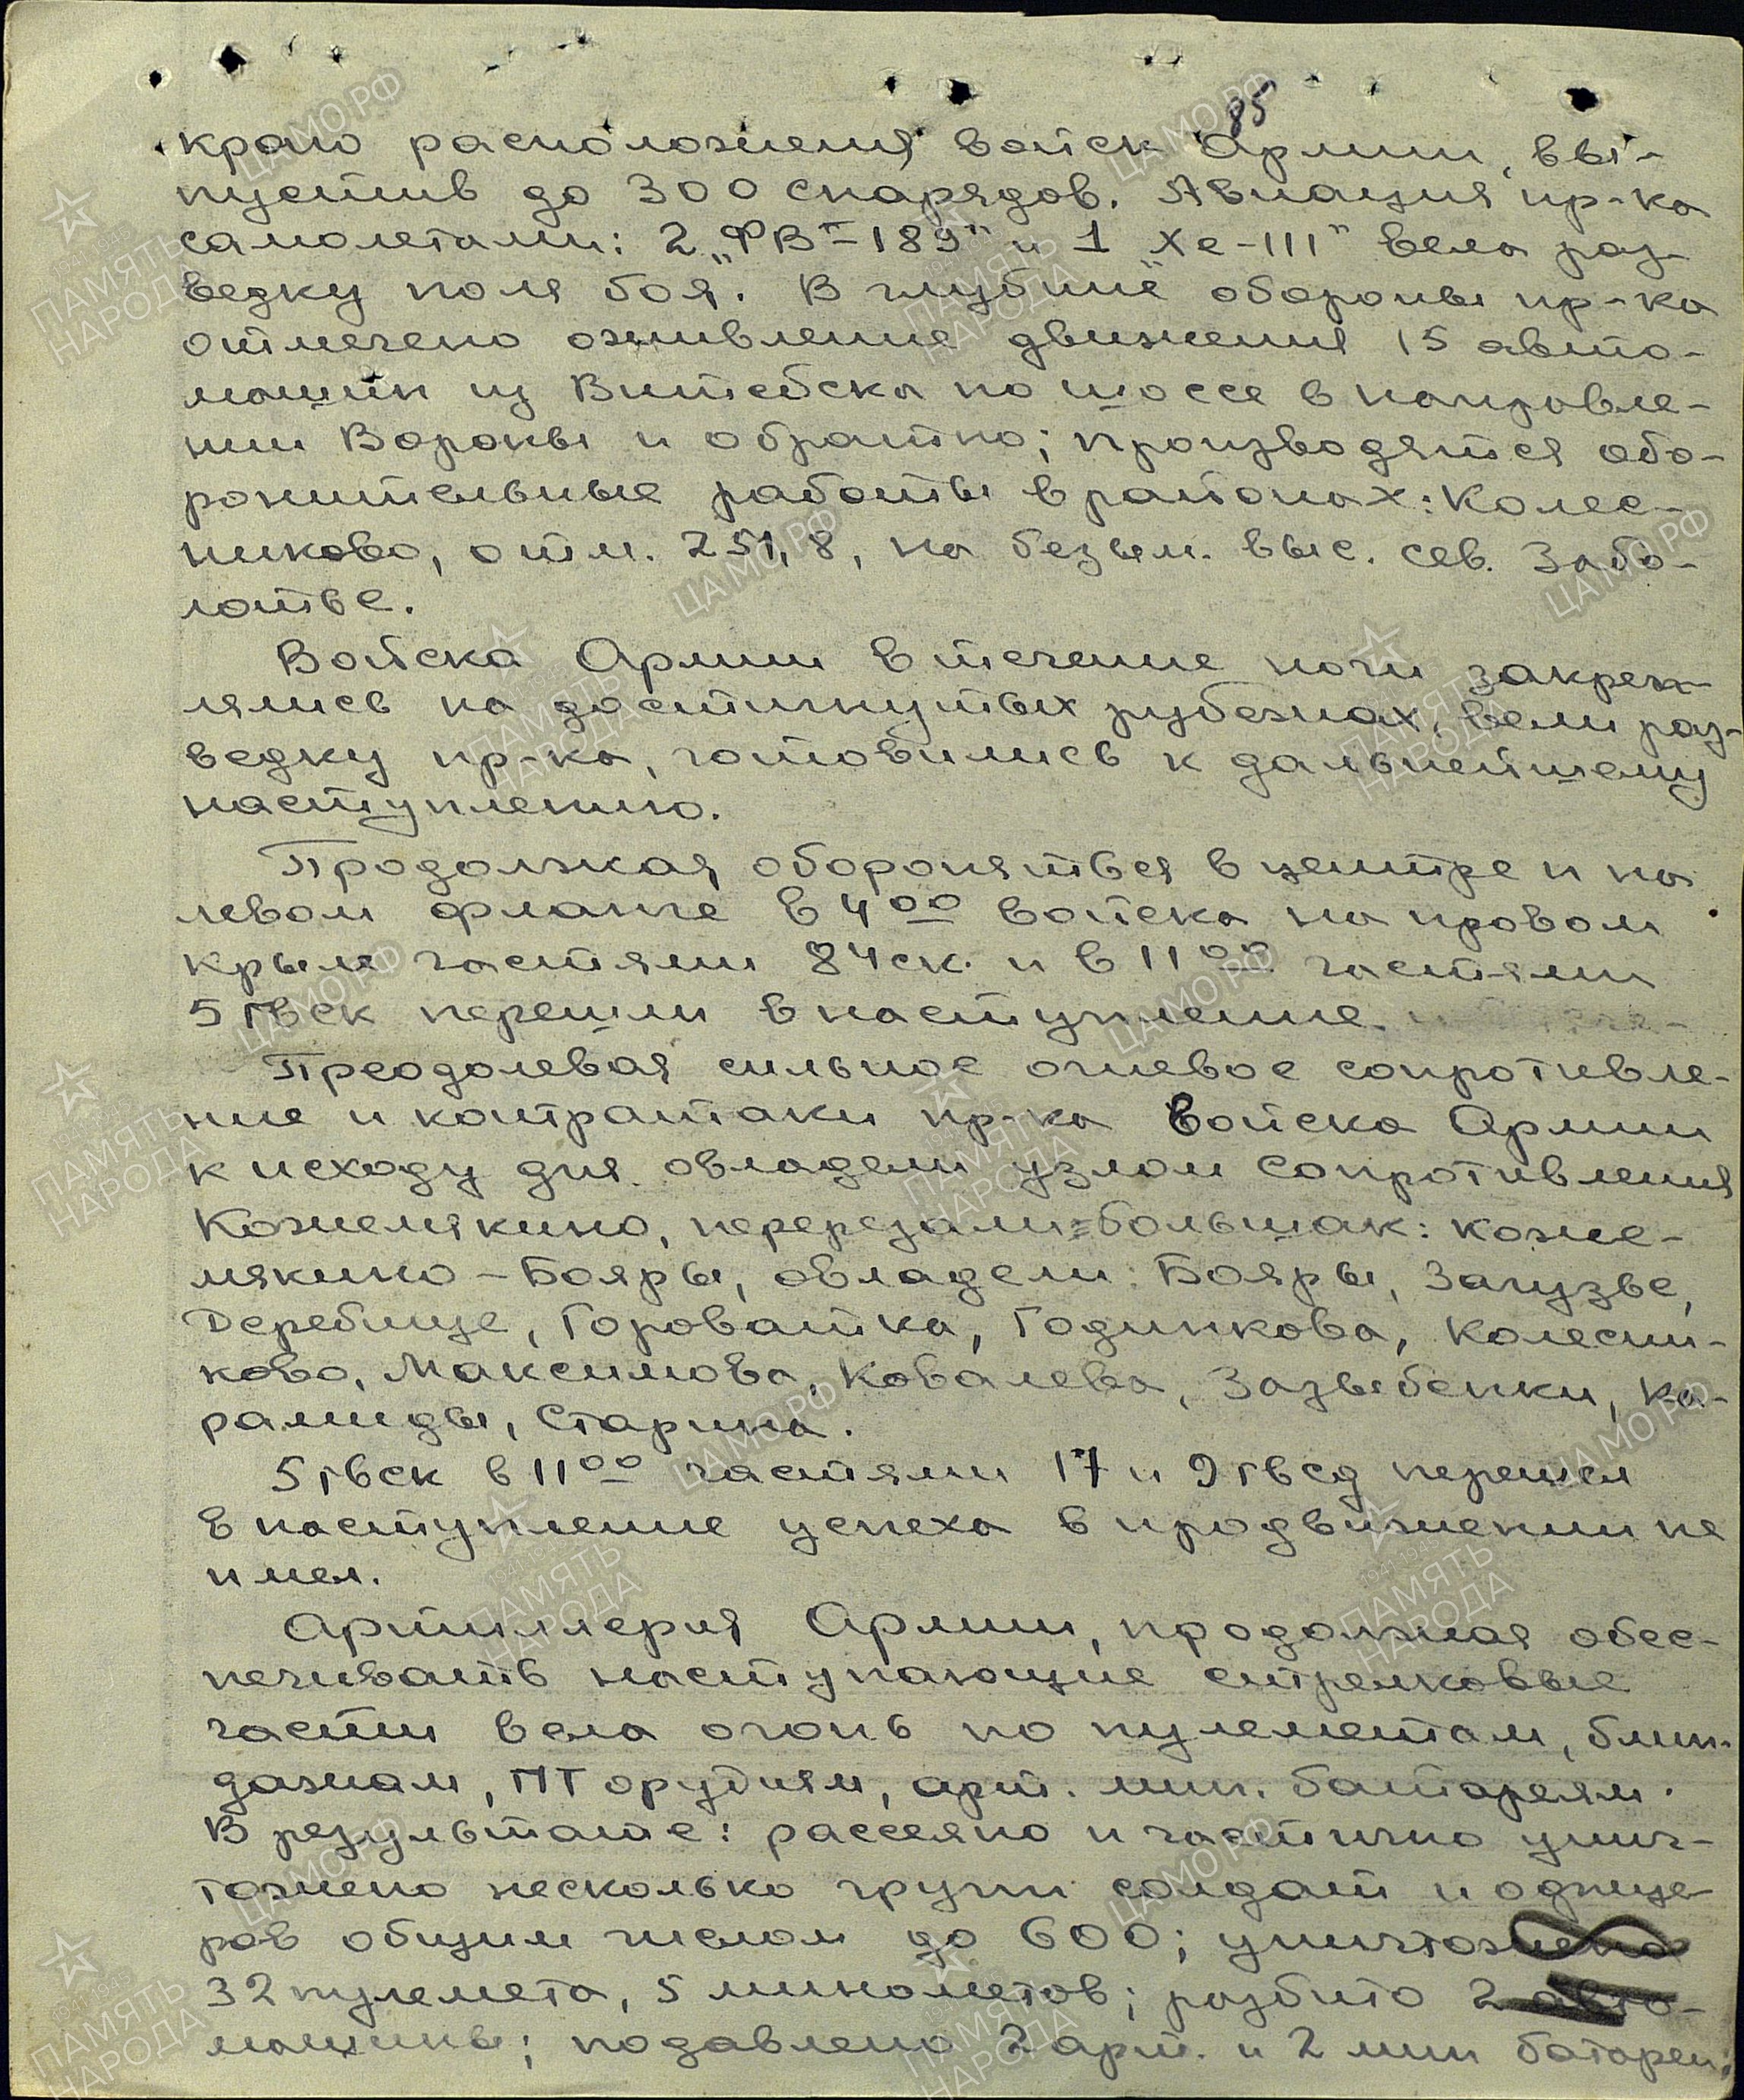 85
краю расположения войск Армии, вы-
пустив до 300 снарядов. Авиация пр-ка
самолетами: 2 „ФВ-189" и 1 „Хе-111" вела раз-
ведку поля боя. В глубине обороны пр-ка
отмечено оживление движения 15 авто-
машин из Витебска по шоссе в направле-
нии Вороны и обратно; производятся обо-
ронительные работы в районах: Колес-
никово, отм. 251,8, на безым. выс. сев. Забо-
лотье.
Войска Армии в течение ночи закреп-
лялись на достигнутых рубежах, вели раз-
ведку пр-ка, готовились к дальнейшему
наступлению.
Продолжая обороняться в центре и на
левом фланге в 4 00 войска на правом
крыле частями 84 ск. и в 11 00 частями
5 гвск перешли в наступление.
Преодолевая сильное огневое сопротивле-
ние и контратаки пр-ка войска Армии
к исходу дня овладели узлом сопротивления
Кожемякино, перерезали большак: Коже-
мякино - Бояры, овладели: Бояры, Загузье,
Дереблище, Горовашка, Годинкова, Колесни-
ково, Максимова, Ковалева, Зазыбенки, Ка-
рамиды, Старина.
5 гвск в 11 00 частями 17 и 9 гвсд перешел
в наступление успеха в продвижении не
имел.
Артиллерия Армии, продолжая обес-
печивать наступающие стрелковые
части вела огонь по пулеметам, блин-
дажам, ПТ орудиям, арт. мин. батареям.
В результате: рассеяно и частично унич-
тожено несколько групп солдат и офице-
ров общим числом до 600; уничтожено
32 пулемета, 5 минометов; разбито 2 авто-
машины; подавлено 2 арт. и 2 мин батареи;
ЦАМО.РФ
ПАМЯТЬ
НАРОДА